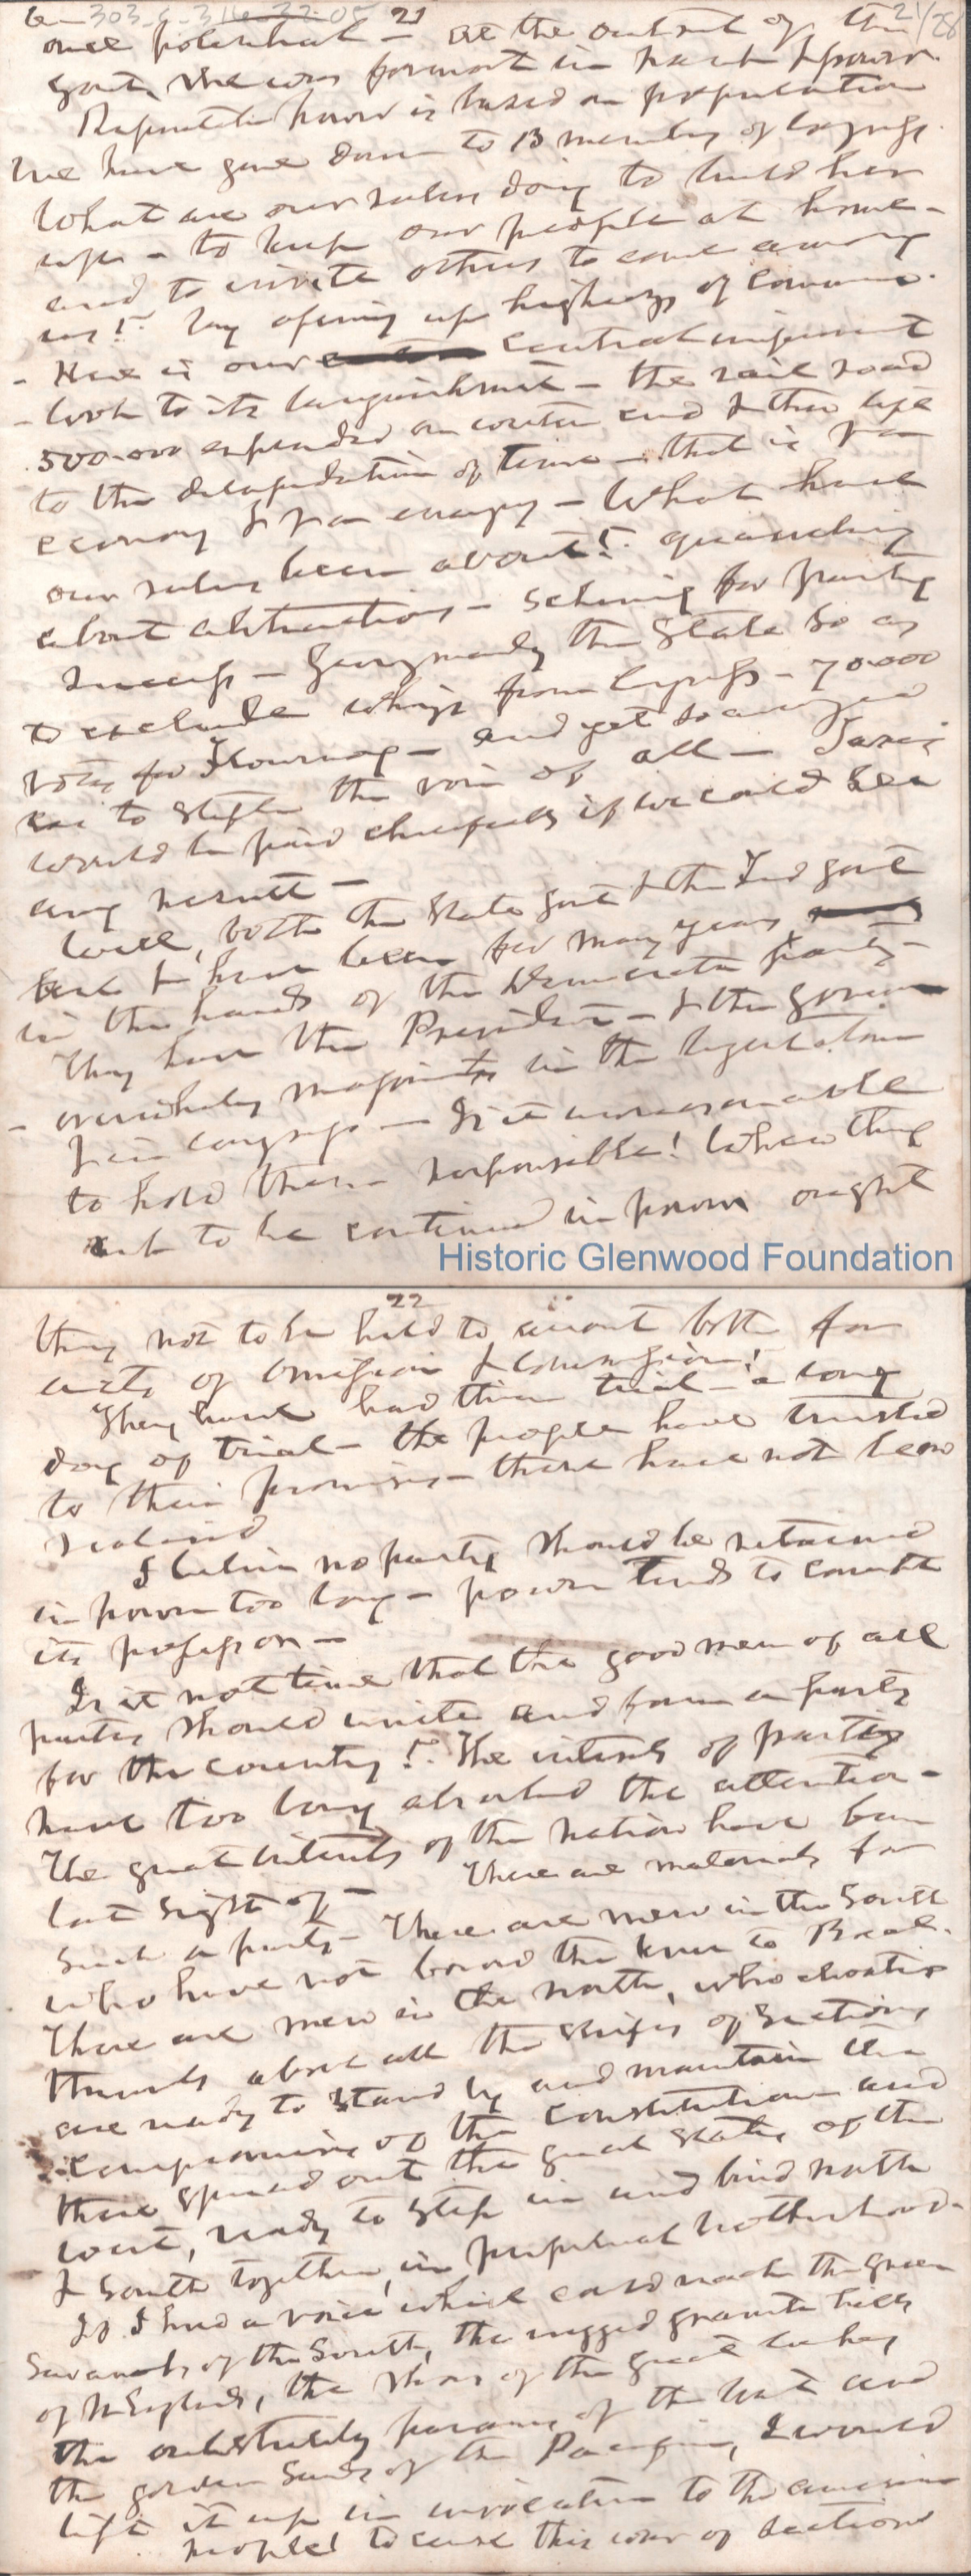 303-6-314-32-05 21 21/28
once potential - at the outset of the
govt, she was foremost in rank & power.
Representative power is based on population
We have gone down to 13 members of Congress.
What are our rulers doing to build her
up - to keep our people at home -
and to invite others to come among
us? by opening up highways of commerce.
- Here is our central improvement
- look to its languishment - the rail road
500.000 expended on western end & then left
to the dilapidation of time - that is Van
economy & Van energy - What have
our rulers been about? quarreling
about abstractions - scheming for party
success - Gerrymandering the State so as
to exclude whigs from Congress - 70.000
votes for Flournoy - and yet so arranged
as to stifle the voice of all - Taxes
would be paid cheerfully if we could see
any result -
Well, both the State govt & the Fed govt
are & have been for many years
in the hands of the Democratic party -
They have the President - & the Governor
- overwhelming majority in the legislature
& in Congress - Is it unreasonable
to hold them responsible! When they
ask to be continued in power ought
Historic Glenwood Foundation
22
they not to be held to account both for
acts of omission & commission!
They have had their trial - a long
day of trial - the people have trusted
to their promises - these have not been
realised
I believe no party should be retained
in power too long - power tends to corrupt
its possessor -
Is it not time that the good men of all
parties should unite and form a party
for the country? The interests of party
have too long absorbed the attention -
The great interests of the nation have been
lost sight of - There are materials for
such a party - There are men in the South
who have not bowed the knee to Baal.
There are men in the north, who elevating
themselves above all the strifes of sections
are ready to stand by and maintain the
compromises of the Constitution and
there spread out the great States of the
West, ready to step in and bind north
& South together, in perpetual brotherhood -
If I had a voice which could reach the green
Savannahs of the South, the rugged granite hills
of N England, the shores of the great lakes
the outstretched prairies of the West and
the golden Sands of the Pacific, I would
lift it up in invocation to the American
people! to cease this war of sections